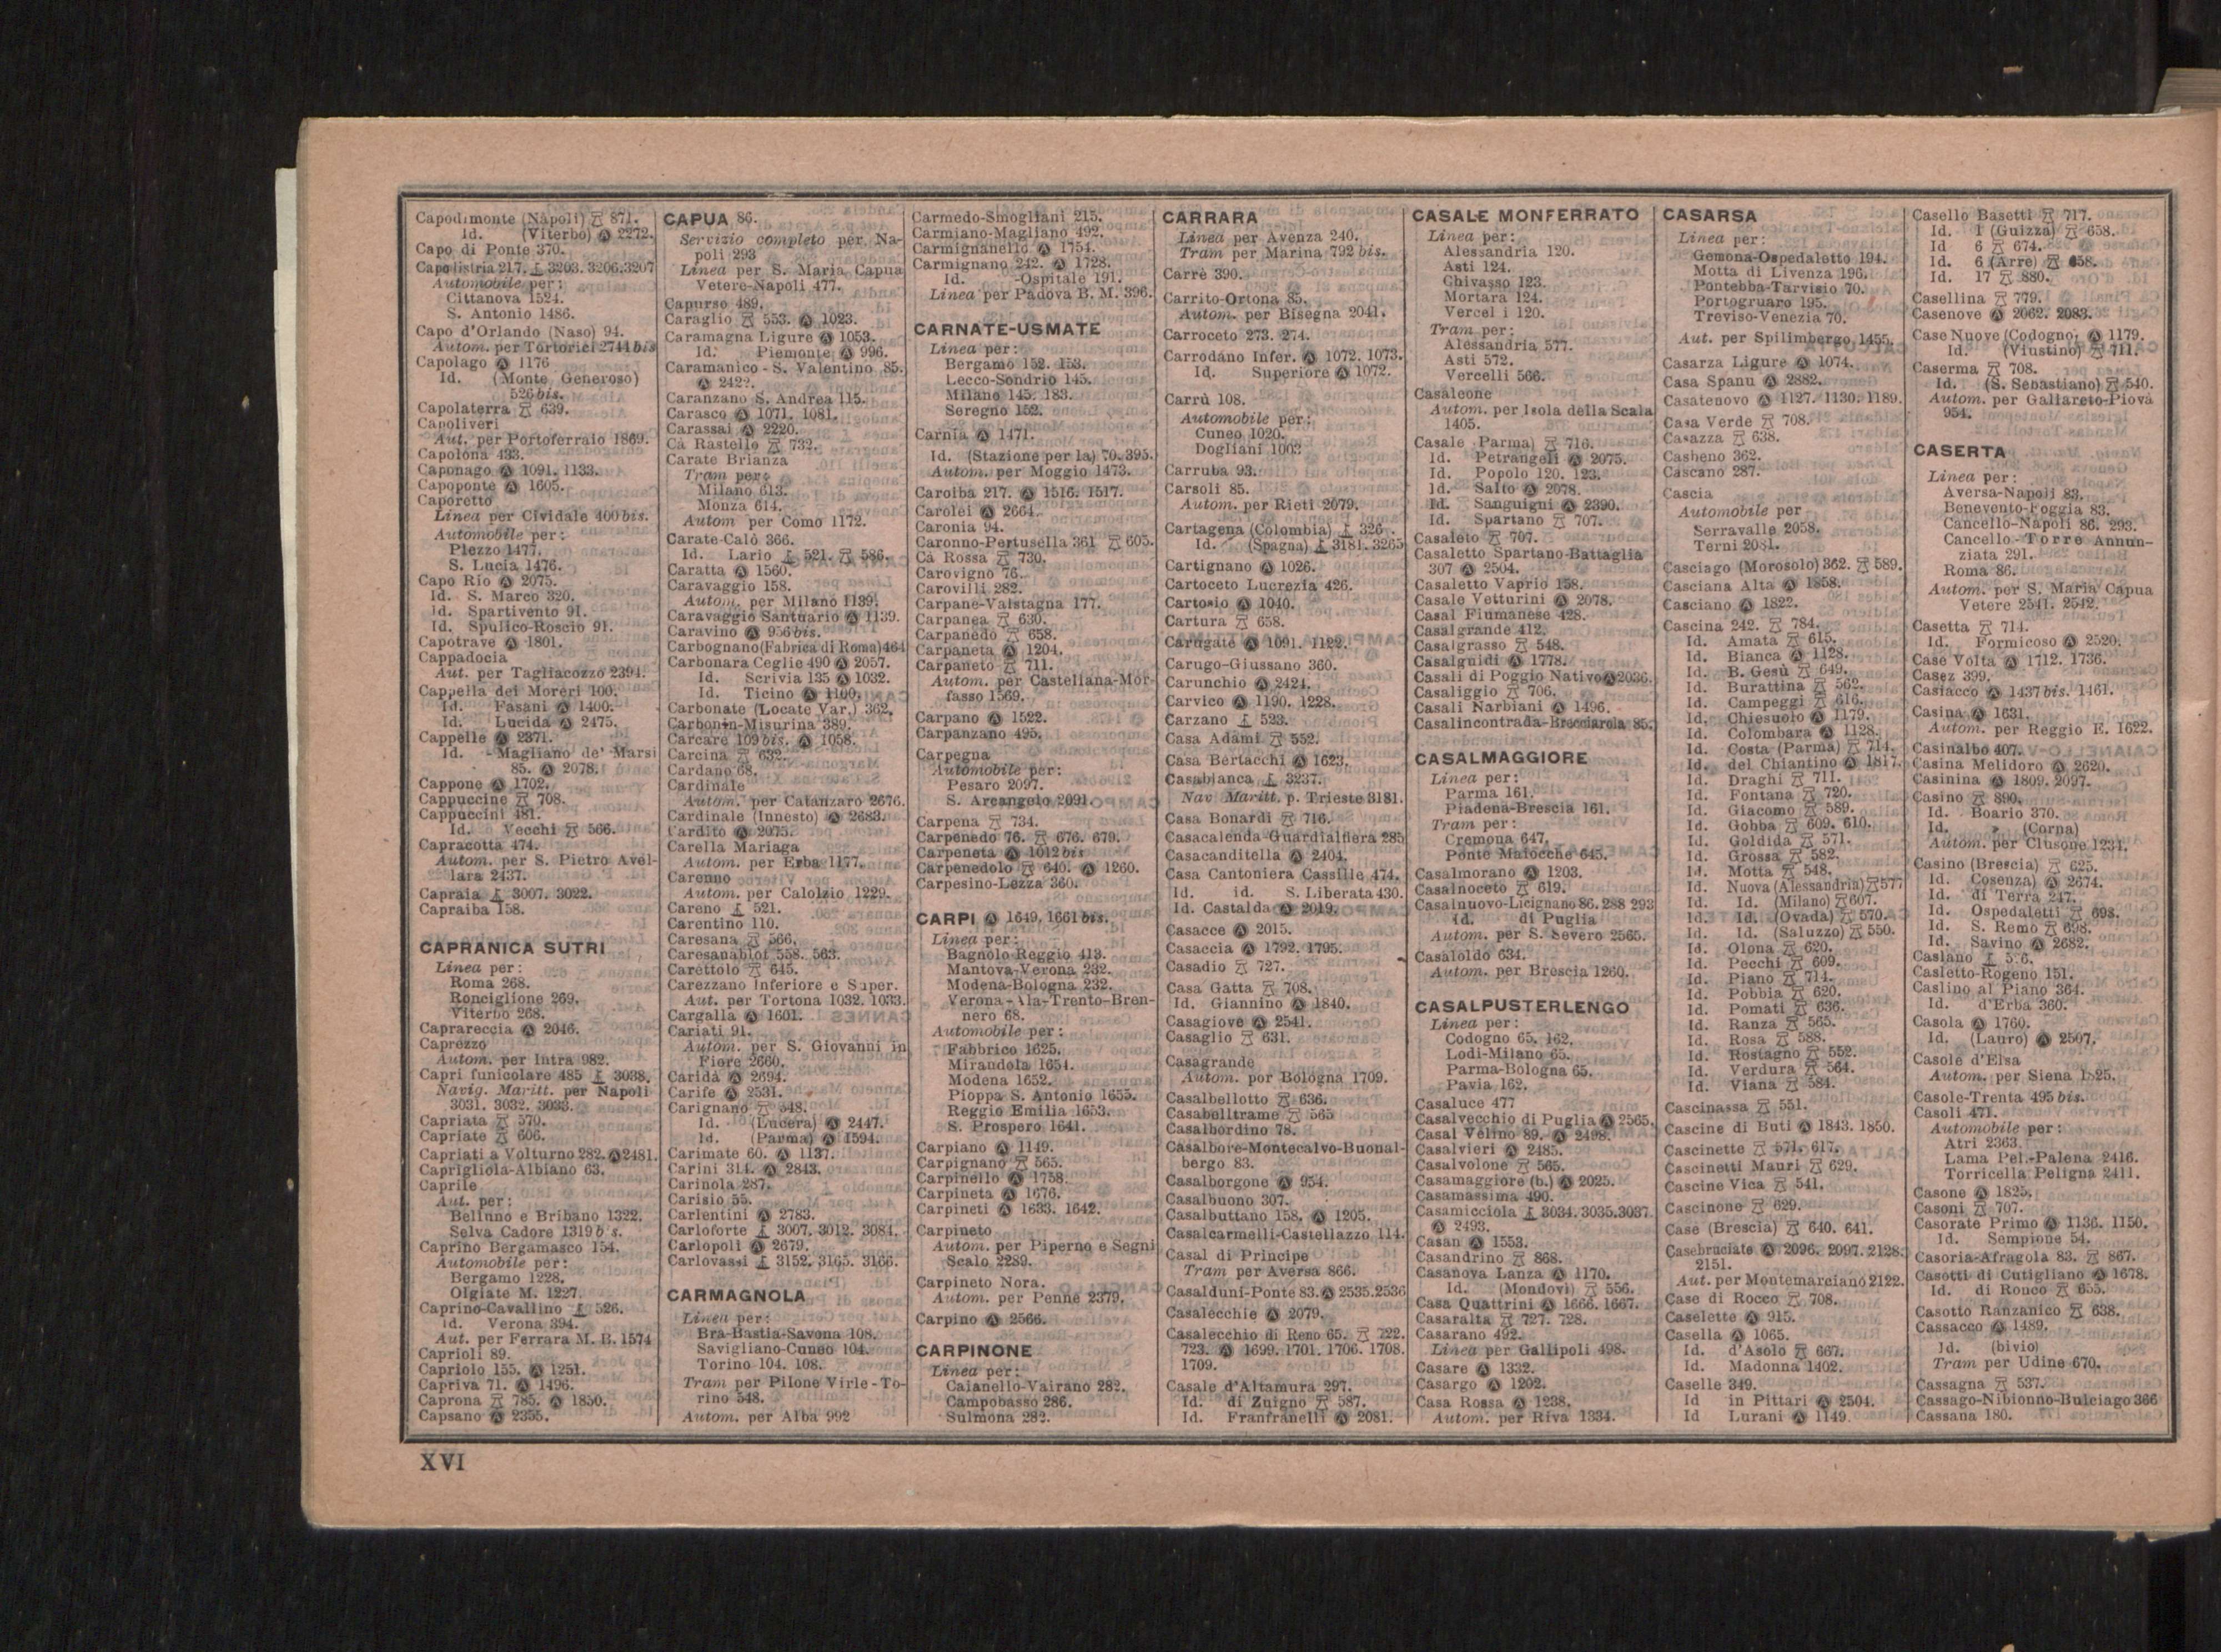 Capodimonte (Nàpoli) 871.
Id. (Viterbo) Ⓐ 2272.
Capo di Ponte 370.
Capodistria 217. 3203. 3206. 3207
Automobile per:
Cittanova 1524.
S. Antonio 1486.
Capo d'Orlando (Naso) 94.
Autom. per Tortorici 2744 bis
Capolago Ⓐ 1176
Id. (Monte Generoso)
526 bis.
Capolaterra 639.
Capoliveri
Aut. per Portoferraio 1869.
Capolona 433.
Caponago Ⓐ 1091. 1133.
Capoponte Ⓐ 1605.
Caporetto
Linea per Cividale 400 bis.
Automobile per:
Plezzo 1477.
S. Lucia 1476.
Capo Rio Ⓐ 2075.
Id. S. Marco 320.
Id. Spartivento 91.
Id. Spulico-Roscio 91.
Capotrave Ⓐ 1801.
Cappadocia
Aut. per Tagliacozzo 2394.
Cappella dei Moreri 100.
Id. Fasani Ⓐ 1400.
Id. Lucida Ⓐ 2475.
Cappelle Ⓐ 2371.
Id. - Magliano de' Marsi
85. Ⓐ 2078.
Cappone Ⓐ 1702.
Cappuccine 708.
Cappuccini 481.
Id. Vecchi 566.
Capracotta 474.
Autom. per S. Pietro Avel-
lara 2437.
Capraia 3007. 3022.
Capraiba 158.
CAPRANICA SUTRI
Linea per:
Roma 268.
Ronciglione 269.
Viterbo 268.
Caprareccia Ⓐ 2046.
Caprezzo
Autom. per Intra 982.
Capri funicolare 485 3038.
Navig. Maritt. per Napoli
3031. 3032. 3033.
Capriata 570.
Capriate 606.
Capriati a Volturno 282. Ⓐ 2481.
Caprigliola-Albiano 63.
Caprile
Aut. per:
Belluno e Bribano 1322.
Selva Cadore 1319 bis.
Caprino Bergamasco 154.
Automobile per:
Bergamo 1228.
Olgiate M. 1227.
Caprino-Cavallino 526.
Id. Verona 394.
Aut. per Ferrara M. B. 1574
Caprioli 89.
Capriolo 155. Ⓐ 1251.
Capriva 71. Ⓐ 1496.
Caprona 785. Ⓐ 1850.
Capsano Ⓐ 2355.
CAPUA 86.
Servizio completo per Na-
poli 293
Linea per S. Maria Capua
Vetere-Napoli 477.
Capurso 489.
Caraglio 553. Ⓐ 1023.
Caramagna Ligure Ⓐ 1053.
Id. Piemonte Ⓐ 996.
Caramanico - S. Valentino 85.
Ⓐ 2422.
Caranzano S. Andrea 115.
Carasco Ⓐ 1071. 1081.
Carassai Ⓐ 2220.
Cà Rastello 732.
Carate Brianza
Tram per:
Milano 613.
Monza 614.
Autom per Como 1172.
Carate-Calò 366.
Id. Lario 521. 586.
Caratta Ⓐ 1560.
Caravaggio 158.
Autom. per Milano 1139.
Caravaggio Santuario Ⓐ 1139.
Caravino Ⓐ 956 bis.
Carbognano (Fabrica di Roma) 464
Carbonara Ceglie 490 Ⓐ 2057.
Id. Scrivia 135 Ⓐ 1032.
Id. Ticino Ⓐ 1100.
Carbonate (Locate Var.) 362.
Carbonin-Misurina 389.
Carcare 109 bis. Ⓐ 1058.
Carcina 632.
Cardano 68.
Cardinale
Autom. per Catanzaro 2676.
Cardinale (Innesto) Ⓐ 2683.
Cardito Ⓐ 2075.
Carella Mariaga
Autom. per Erba 1177.
Carenno
Autom. per Calolzio 1229.
Careno 521.
Carentino 110.
Caresana 566.
Caresanablot 558. 563.
Carettolo 645.
Carezzano Inferiore e Super.
Aut. per Tortona 1032. 1033.
Cargalla Ⓐ 1601.
Cariati 91.
Autom. per S. Giovanni in
Fiore 2660.
Caridà Ⓐ 2694.
Carife Ⓐ 2531.
Carignano 548.
Id. (Lucera) Ⓐ 2447.
Id. (Parma) Ⓐ 1594.
Carimate 60. Ⓐ 1137.
Carini 314. Ⓐ 2843.
Carinola 287.
Carisio 55.
Carlentini Ⓐ 2783.
Carloforte 3007. 3012. 3084.
Carlopoli Ⓐ 2679.
Carlovassi 3152. 3165. 3166.
CARMAGNOLA
Linea per:
Bra-Bastia-Savona 108.
Savigliano-Cuneo 104.
Torino 104. 108.
Tram per Pilone Virle-To-
rino 548.
Autom. per Alba 992
Carmedo-Smogliani 215.
Carmiano-Magliano 492.
Carmignanello Ⓐ 1754.
Carmignano 242. Ⓐ 1728.
Id. -Ospitale 191.
Linea per Padova B. M. 396.
CARNATE-USMATE
Linea per:
Bergamo 152. 153.
Lecco-Sondrio 145.
Milano 145. 183.
Seregno 152.
Carnia Ⓐ 1471.
Id. (Stazione per la) 70. 395.
Autom. per Moggio 1473.
Caroiba 217. Ⓐ 1516. 1517.
Carolei Ⓐ 2664.
Caronia 94.
Caronno-Pertusella 361 605.
Cà Rossa 730.
Carovigno 76.
Carovilli 282.
Carpanè-Valstagna 177.
Carpanea 630.
Carpanedo 658.
Carpaneta Ⓐ 1204.
Carpaneto 711.
Autom. per Castellana-Mor-
fasso 1569.
Carpano Ⓐ 1522.
Carpanzano 495.
Carpegna
Automobile per:
Pesaro 2097.
S. Arcangelo 2091.
Carpena 734.
Carpenedo 76. 676. 679.
Carpeneta Ⓐ 1012 bis
Carpenedolo 640. Ⓐ 1260.
Carpesino-Lezza 360.
CARPI Ⓐ 1649. 1661 bis.
Linea per:
Bagnolo Reggio 413.
Mantova-Verona 232.
Modena-Bologna 232.
Verona-Ala-Trento-Bren-
nero 68.
Automobile per:
Fabbrico 1625.
Mirandola 1654.
Modena 1652.
Pioppa S. Antonio 1655.
Reggio Emilia 1653.
S. Prospero 1641.
Carpiano Ⓐ 1149.
Carpignano 565.
Carpinello Ⓐ 1758.
Carpineta Ⓐ 1676.
Carpineti Ⓐ 1633. 1642.
Carpineto
Autom. per Piperno e Segni
Scalo 2289.
Carpineto Nora.
Autom. per Penne 2379.
Carpino Ⓐ 2566.
CARPINONE
Linea per:
Caianello-Vairano 282.
Campobasso 286.
Sulmona 282.
CARRARA
Linea per Avenza 240.
Tram per Marina 792 bis.
Carrè 390.
Carrito-Ortona 85.
Autom. per Bisegna 2041.
Carroceto 273. 274.
Carrodano Infer. Ⓐ 1072. 1073.
Id. Superiore Ⓐ 1072.
Carrù 108.
Automobile per:
Cuneo 1020.
Dogliani 1003
Carruba 93.
Carsoli 85.
Autom. per Rieti 2079.
Cartagena (Colombia) 326
Id. (Spagna) 3181. 3265
Cartignano Ⓐ 1026.
Cartoceto Lucrezia 426.
Cartosio Ⓐ 1040.
Cartura 658.
Carugate Ⓐ 1091. 1122.
Carugo-Giussano 360.
Carunchio Ⓐ 2424.
Carvico Ⓐ 1190. 1228.
Carzano 523.
Casa Adami 552.
Casa Bertacchi Ⓐ 1623.
Casabianca 3237.
Nav Maritt. p. Trieste 3181.
Casa Bonardi 716.
Casacalenda Guardialfiera 285
Casacanditella Ⓐ 2404.
Casa Cantoniera Cassille 474.
Id. id. S. Liberata 430.
Id. Castalda Ⓐ 2019.
Casacce Ⓐ 2015.
Casaccia Ⓐ 1792. 1795.
Casadio 727.
Casa Gatta 708.
Id. Giannino Ⓐ 1840.
Casagiove Ⓐ 2541.
Casaglio 631.
Casagrande
Autom. por Bologna 1709.
Casalbellotto 636.
Casabelltrame 565
Casalbordino 78.
Casalbore-Montecalvo-Buonal-
bergo 83.
Casalborgone Ⓐ 954.
Casalbuono 307.
Casalbuttano 158. Ⓐ 1205.
Casalcarmelli-Castellazzo 114.
Casal di Principe
Tram per Aversa 866.
Casalduni-Ponte 83. Ⓐ 2535.2536
Casalecchie Ⓐ 2079.
Casalecchio di Reno 65. 722.
723. Ⓐ 1699. 1701. 1706. 1708.
1709.
Casale d'Altamura 297.
Id. di Zuigno 587.
Id. Franfranelli Ⓐ 2081.
CASALE MONFERRATO
Linea per:
Alessandria 120.
Asti 124.
Chivasso 123.
Mortara 124.
Vercelli 120.
Tram per:
Alessandria 577.
Asti 572.
Vercelli 566.
Casaleone
Autom. per Isola della Scala
1405.
Casale Parma) 716.
Id. Petrangeli Ⓐ 2075.
Id. Popolo 120. 123.
Id. Salto Ⓐ 2078.
Id. Sanguigni Ⓐ 2390.
Id. Spartano 707.
Casaleto 707.
Casaletto Spartano-Battaglia
307 Ⓐ 2504.
Casaletto Vaprio 158.
Casale Vetturini Ⓐ 2078.
Casal Fiumanese 428.
Casalgrande 412.
Casalgrasso 548.
Casalguidi Ⓐ 1778.
Casali di Poggio Nativo Ⓐ 2036.
Casaliggio 706.
Casali Narbiani Ⓐ 1496.
Casalincontrada-Brecciarola 85.
CASALMAGGIORE
Linea per:
Parma 161.
Piadena-Brescia 161.
Tram per:
Cremona 647.
Ponte Maiocche 645.
Casalmorano Ⓐ 1203.
Casalnoceto 619.
Casalnuovo-Licignano 86. 288 293
Id. di Puglia
Autom. per S. Severo 2565.
Casaloldo 634.
Autom. per Brescia 1260.
CASALPUSTERLENGO
Linea per:
Codogno 65. 162.
Lodi-Milano 65.
Parma-Bologna 65.
Pavia 162.
Casaluce 477
Casalvecchio di Puglia Ⓐ 2565.
Casal Velino 89. Ⓐ 2498.
Casalvieri Ⓐ 2485.
Casalvolone 565.
Casamaggiore (b.) Ⓐ 2025.
Casamassima 490.
Casamicciola 3034.3035.3037
Ⓐ 2493.
Casan Ⓐ 1553.
Casandrino 868.
Casanova Lanza Ⓐ 1170.
Id. (Mondovì) 556.
Casa Quattrini Ⓐ 1666. 1667.
Casaralta 727. 728.
Casarano 492.
Linea per Gallipoli 498.
Casare Ⓐ 1332.
Casargo Ⓐ 1202.
Casa Rossa Ⓐ 1238.
Autom. per Riva 1334.
CASARSA
Linea per:
Gemona-Ospedaletto 194.
Motta di Livenza 196.
Pontebba-Tarvisio 70.
Portogruaro 195.
Treviso-Venezia 70.
Aut. per Spilimbergo 1455.
Casarza Ligure Ⓐ 1074.
Casa Spanu Ⓐ 2882.
Casatenovo Ⓐ 1127. 1130. 1189.
Casa Verde 708.
Casazza 638.
Casbeno 362.
Cascano 287.
Cascia
Automobile per
Serravalle 2058.
Terni 2081.
Casciago (Morosolo) 362. 589.
Casciana Alta Ⓐ 1858.
Casciano Ⓐ 1822.
Cascina 242. 784.
Id. Amata 615.
Id. Bianca Ⓐ 1128.
Id. B. Gesù 649.
Id. Burattina 562.
Id. Campeggi 616.
Id. Chiesuolo Ⓐ 1179.
Id. Colombara Ⓐ 1128.
Id. Costa (Parma) 714.
Id. del Chiantino Ⓐ 1817.
Id. Draghi 711.
Id. Fontana 720.
Id. Giacomo 589.
Id. Gobba 609. 610.
Id. Goldida 571.
Id. Grossa 582.
Id. Motta 548.
Id. Nuova (Alessandria) 577
Id. Id. (Milano) 607.
Id. Id. (Ovada) 570.
Id. Id. (Saluzzo) 550.
Id. Olona 620.
Id. Pecchi 609.
Id. Piano 714.
Id. Pobbia 620.
Id. Pomati 636.
Id. Ranza 565.
Id. Rosa 588.
Id. Rostagno 552.
Id. Verdura 564.
Id. Viana 584.
Cascinassa 551.
Cascine di Buti Ⓐ 1843. 1850.
Cascinette 571. 617.
Cascinetti Mauri 629.
Cascine Vica 541.
Cascinone 629.
Case (Brescia) 640. 641.
Casebruciate Ⓐ 2096. 2097. 2128.
2151.
Aut. per Montemarciano 2122.
Case di Rocco 708.
Caselette Ⓐ 915.
Casella Ⓐ 1065.
Id. d'Asolo 667.
Id. Madonna 1402.
Caselle 349.
Id in Pittari Ⓐ 2504.
Id Lurani Ⓐ 1149.
Casello Basetti 717.
Id. 1 (Guizza) 658.
Id 6 674.
Id. 6 (Arre) 658.
Id. 17 880.
Casellina 779.
Casenove Ⓐ 2062. 2083.
Case Nuove (Codogno) Ⓐ 1179.
Id. (Viustino) 711.
Caserma 708.
Id. (S. Sebastiano) 540.
Autom. per Gallareto-Piovà
954.
CASERTA
Linea per:
Aversa-Napoli 83.
Benevento-Foggia 83.
Cancello-Napoli 86. 293.
Cancello-Torre Annun-
ziata 291.
Roma 86.
Autom. per S. Maria Capua
Vetere 2541. 2542.
Casetta 714.
Id. Formicoso Ⓐ 2520.
Case Volta Ⓐ 1712. 1736.
Casez 399.
Casiacco Ⓐ 1437 bis. 1461.
Casina Ⓐ 1631.
Autom. per Reggio E. 1622.
Casinalbo 407.
Casina Melidoro Ⓐ 2620.
Casinina Ⓐ 1809. 2097.
Casino 890.
Id. Boario 370.
Id. » (Corna)
Autom. per Clusone 1231.
Casino (Brescia) 625.
Id. Cosenza) Ⓐ 2674.
Id. di Terra 247.
Id. Ospedaletti 698.
Id. S. Remo 698.
Id. Savino Ⓐ 2682.
Caslano 526.
Casletto-Rogeno 151.
Caslino al Piano 364.
Id. d'Erba 360.
Casola Ⓐ 1760.
Id. (Lauro) Ⓐ 2507.
Casole d'Elsa
Autom. per Siena 1825.
Casole-Trenta 495 bis.
Casoli 471.
Automobile per:
Atri 2363.
Lama Pel.-Palena 2416.
Torricella Peligna 2411.
Casone Ⓐ 1825.
Casoni 707.
Casorate Primo Ⓐ 1136. 1150.
Id. Sempione 54.
Casoria-Afragola 83. 867.
Casotti di Cutigliano Ⓐ 1678.
Id. di Ronco 655.
Casotto Ranzanico 638.
Cassacco Ⓐ 1489.
Id. (bivio)
Tram per Udine 670.
Cassagna 537.
Cassago-Nibionno-Bulciago 366
Cassana 180.
XVI